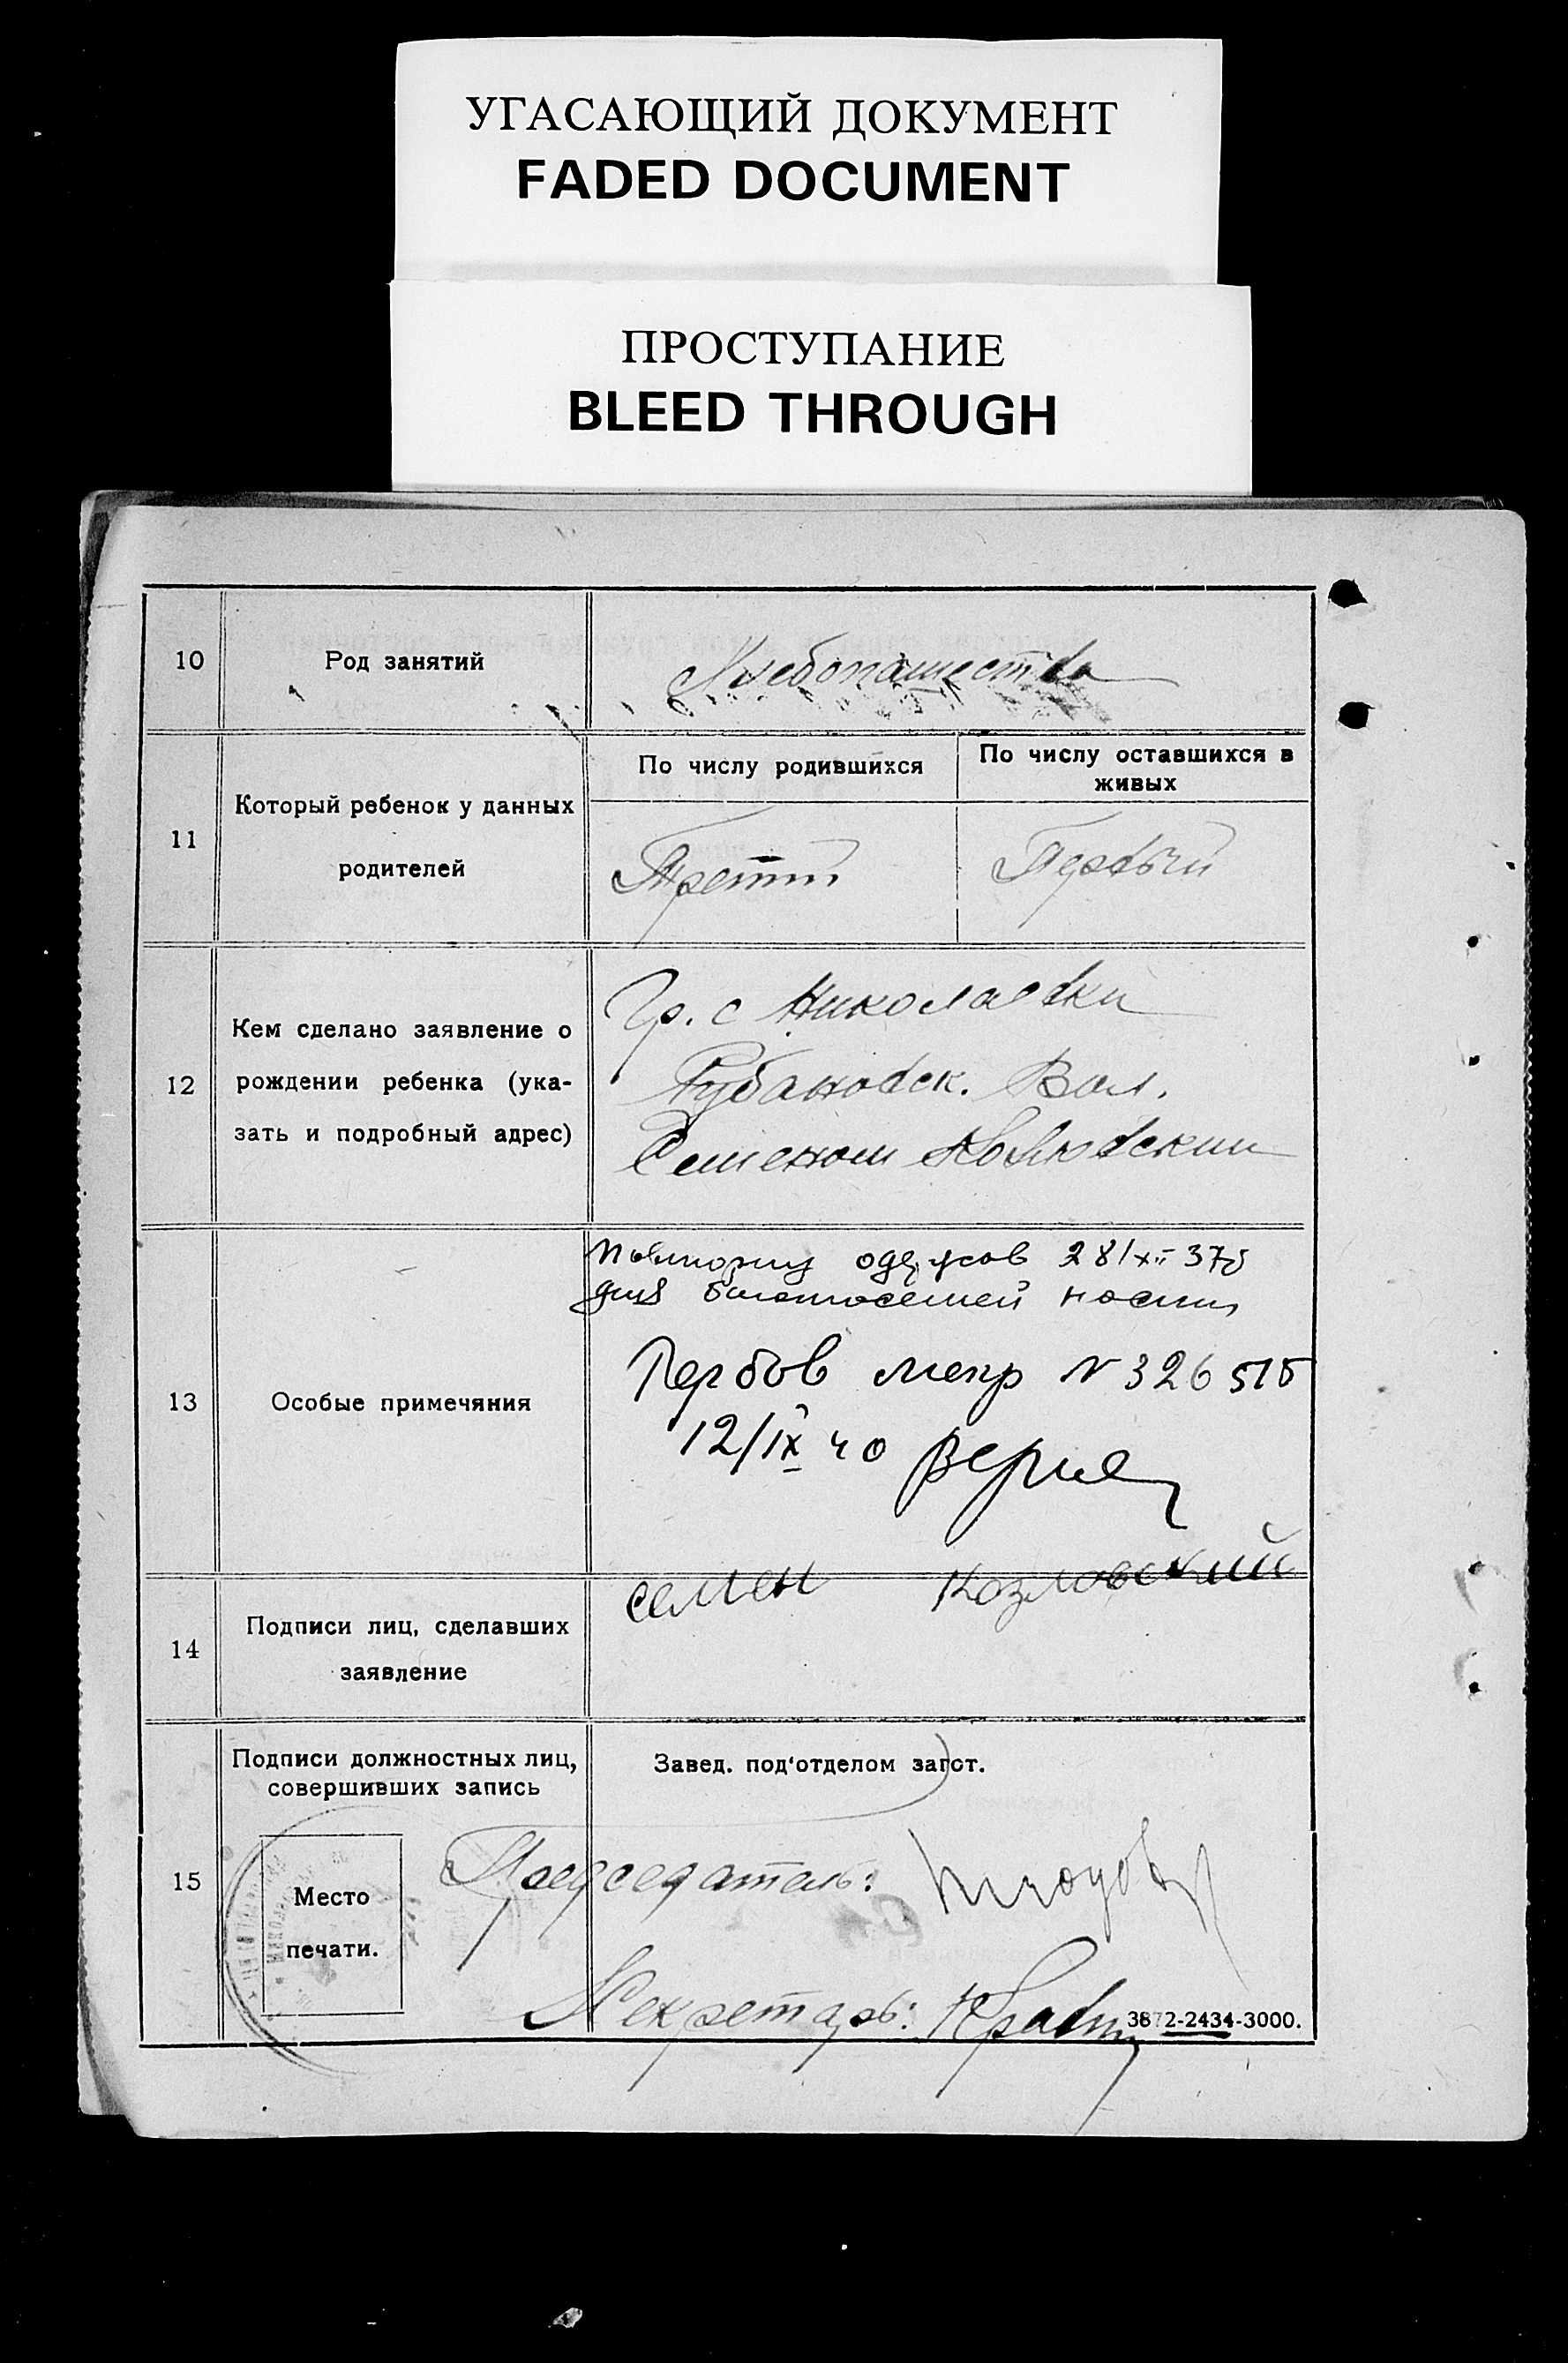 УГАСАЮЩИЙ ДОКУМЕНТ
FADED DOCUMENT
ПРОСТУПАНИЕ
BLEED THROUGH
10
Род занятий
Хлебопашества
11
Который ребенок у данных
родителей
По числу родившихся
Третий
По числу оставшихся в
живых
Первый
12
Кем сделано заявление о
рождении ребенка (ука-
зать и подробный адрес)
Гр. с Николаевки
Рубановск. Вол.
Семеном Козловским
13
Особые примечяния
28/XII 37
N 326 515
12/IX 40
14
Подписи лиц, сделавших
заявление
семен Козловский
15
Подписи должностных лиц,
совершивших запись
Место
печати.
Завед. под'отделом загст.
Председатель:
Секретарь:
3872-2434-3000.